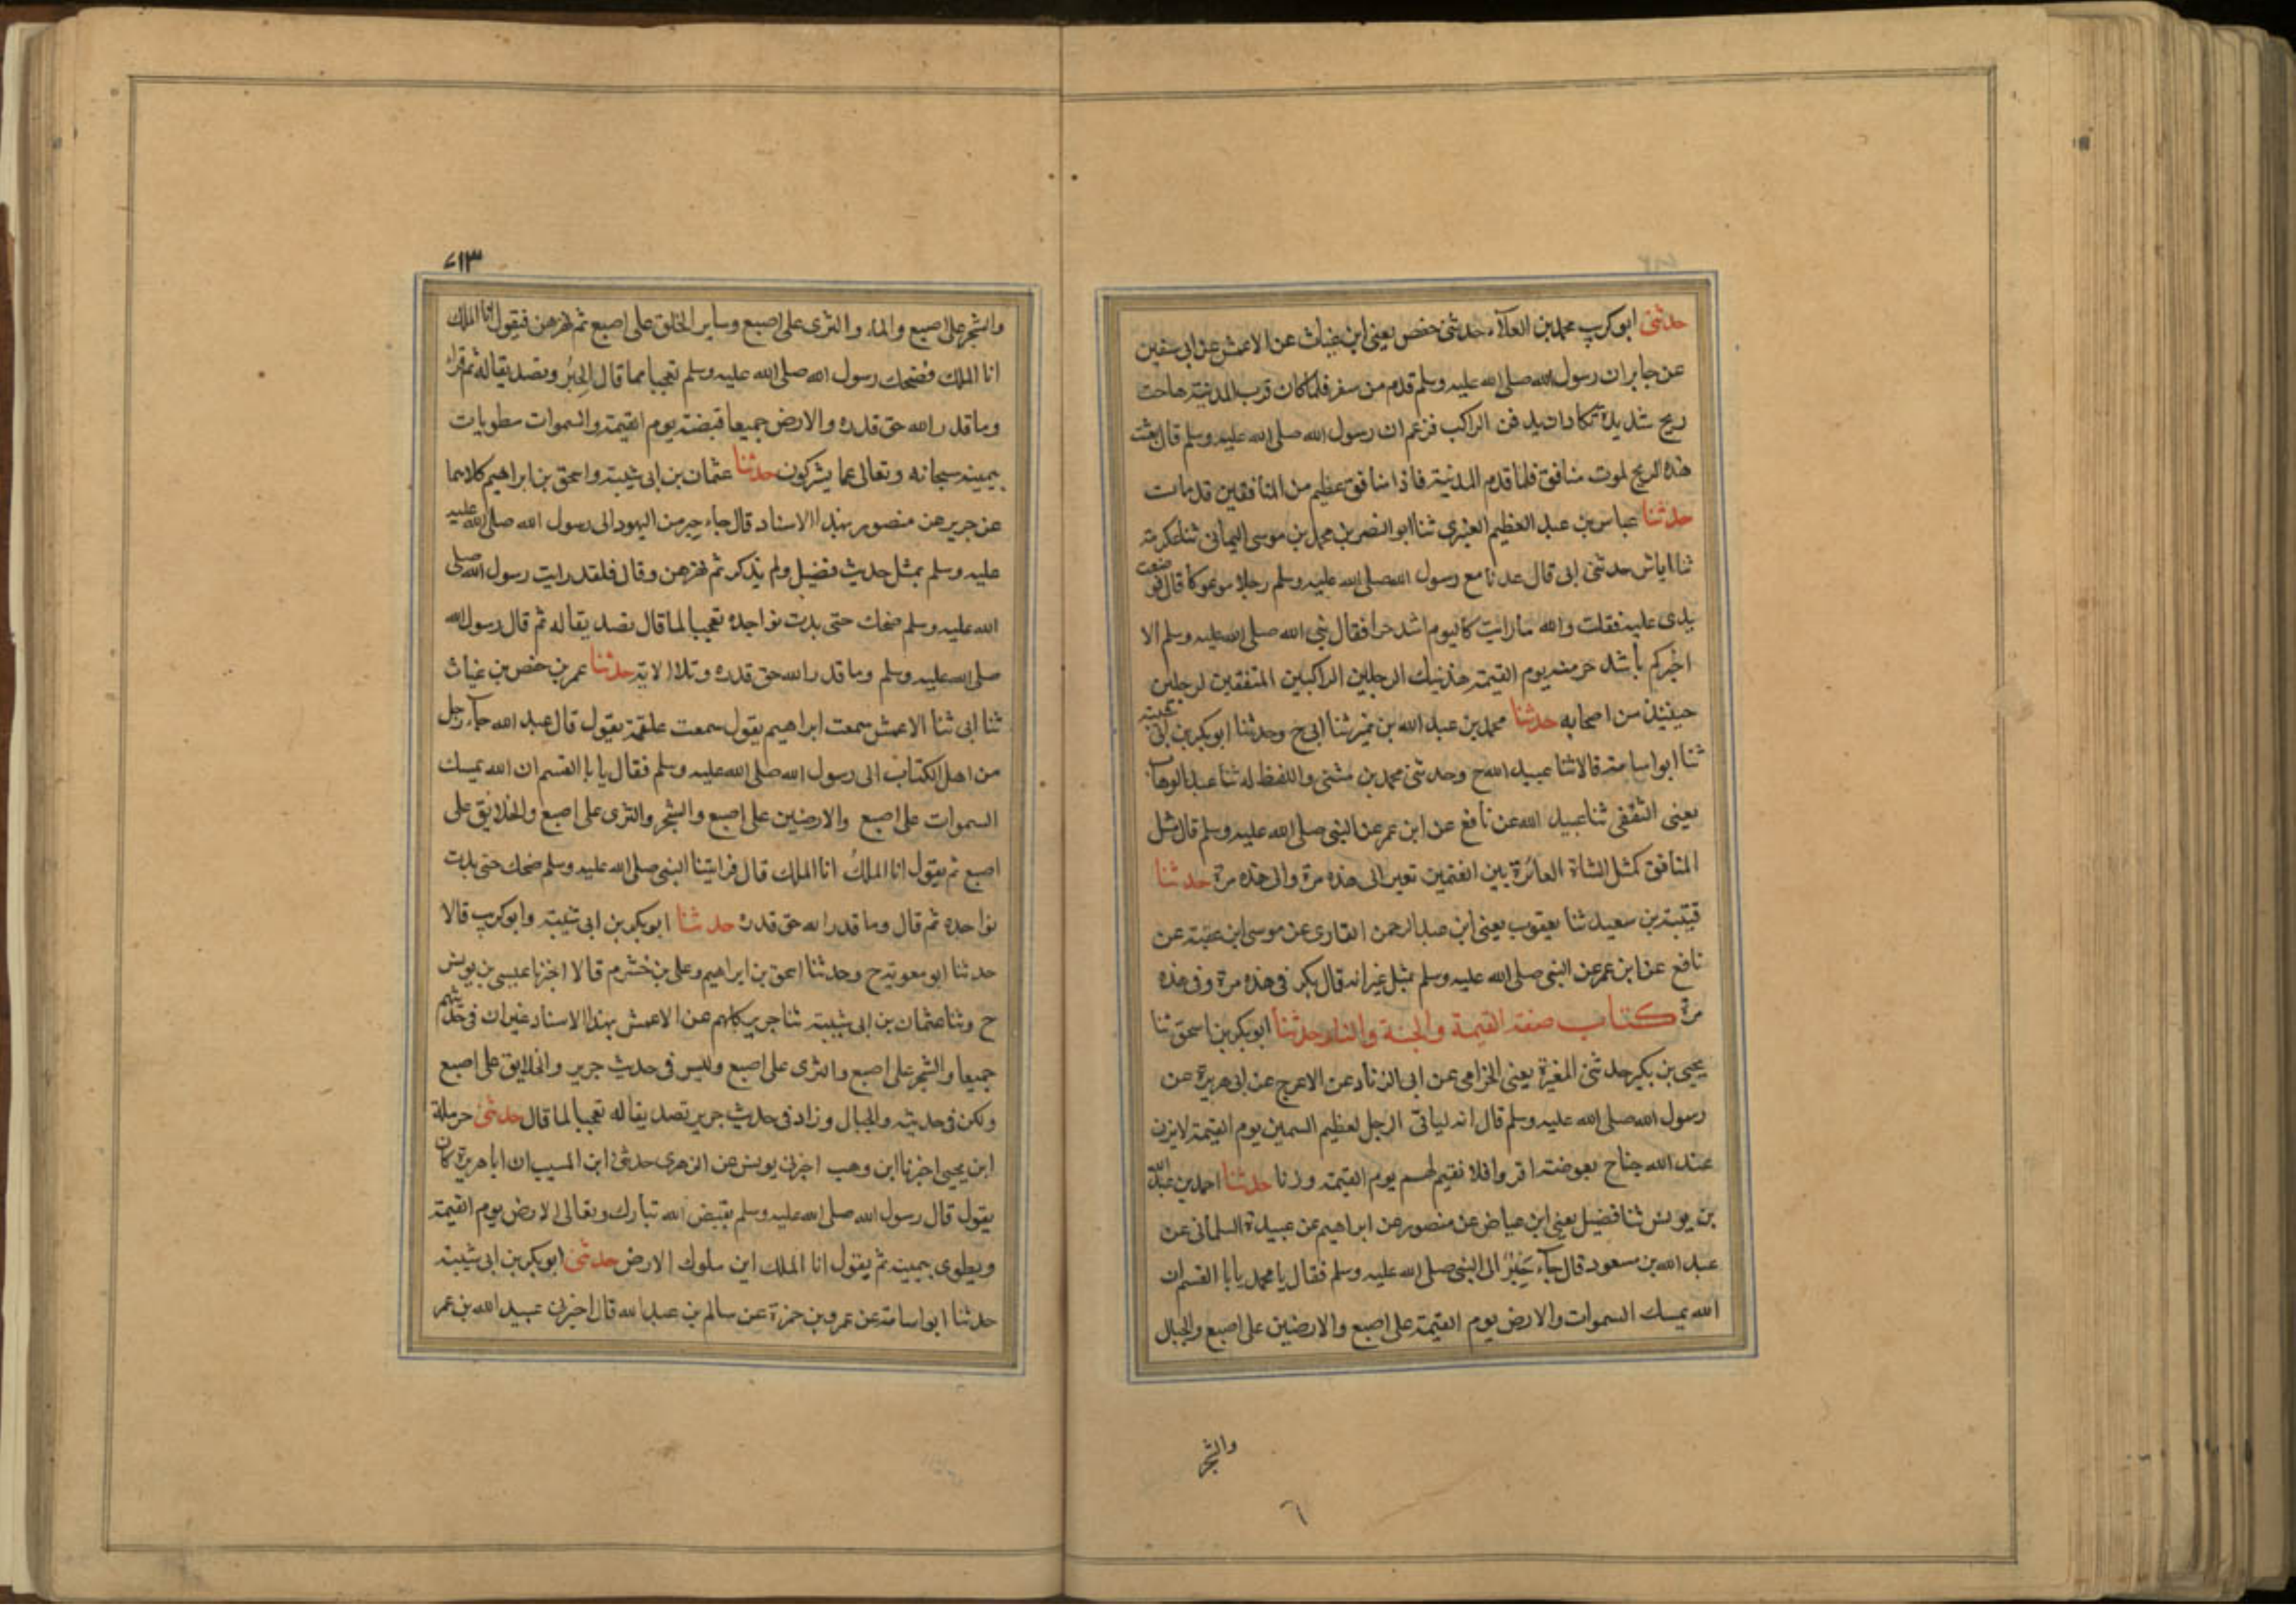 حدثني ابوكريب محمد بن العلاء حدثني حفص يعني ابن غياث عن الاعمش عن ابي سفين
عن جابر ان رسول الله صلى الله عليه وسلم قدم من سفر فلما كان قرب المدينة هاجت
ريح شديدة تكاد ان يدفن الراكب فزعم ان رسول الله صلى الله عليه وسلم قال بعثت
هذه الريح لموت منافق فلما قدم المدينة فاذا منافق عظيم من المنافقين قد مات
حدثنا عباس بن عبد العظيم العنبري ثنا ابو النضر بن محمد بن موسى اليماني ثنا عكرمة
ثنا اياس حدثني ابي قال عدنا مع رسول الله صلى الله عليه وسلم رجلا موعوكا قال فوضعت
يدي عليه فقلت والله ما رايت كاليوم اشد حرا فقال نبي الله صلى الله عليه وسلم الا
اخبركم باشد حر منه يوم القيمة هذنيك الرجلين الراكبين المقفين لرجلين
حينئذ من اصحابه حدثنا محمد بن عبد الله بن نمير ثنا ابي ح وحدثنا ابوبكر بن ابي شيبة
ثنا ابو اسامة قالا ثنا عبيد الله ح وحدثني محمد بن مثنى واللفظ له ثنا عبد الوهاب
يعني الثقفي ثنا عبيد الله عن نافع عن ابن عمر عن النبي صلى الله عليه وسلم قال مثل
المنافق كمثل الشاة العائرة بين الغنمين تعير الى هذه مرة والى هذه مرة حدثنا
قتيبة بن سعيد ثنا يعقوب يعني ابن عبد الرحمن القاري عن موسى ابن عقبة عن
نافع عن ابن عمر عن النبي صلى الله عليه وسلم بمثل غير انه قال تكر في هذه مرة وفي هذه
مرة كتاب صفة القيمة والجنة والنار حدثنا ابوبكر بن اسحق ثنا
يحيى بن بكير حدثني المغيرة يعني الحزامي عن ابي الزناد عن الاعرج عن ابي هريرة عن
رسول الله صلى الله عليه وسلم قال انه لياتي الرجل لعظيم السمين يوم القيمة لا يزن
عند الله جناح بعوضة اقروا فلا نقيم لهم يوم القيمة وزنا حدثنا احمد بن عبد الله
بن يونس ثنا فضيل يعني ابن عياض عن منصور عن ابراهيم عن عبيدة السلماني عن
عبد الله بن مسعود قال جآء حبر الى النبي صلى الله عليه وسلم فقال يا محمد يا ابا القسم ان
الله يمسك السموات والارض يوم القيمة على اصبع والارضين على اصبع والجبال
والشجر
٦
٧١٣
والشجر على اصبع والماء والثرى على اصبع وساير الخلق على اصبع ثم يهزهن فيقول انا الملك
انا الملك فضحك رسول الله صلى الله عليه وسلم تعجبا مما قال الحبر وتصديقا له ثم قراء
وما قدر الله حق قدره والارض جميعا قبضته يوم القيمة والسموات مطويات
بيمينه سبحانه وتعالى عما يشركون حدثنا عثمان بن ابي شيبة واسحق بن ابراهيم كلاهما
عن جرير عن منصور بهذا الاسناد قال جاء حبر من اليهود الى رسول الله صلى الله عليه
عليه وسلم بمثل حديث فضيل ولم يذكر ثم يهزهن وقال فلقد رايت رسول الله صلى
الله عليه وسلم ضحك حتى بدت نواجذه تعجبا لما قال تصديقا له ثم قال رسول الله
صلى الله عليه وسلم وما قدر الله حق قدره وتلا الاية حدثنا عمر بن حفص بن غياث
ثنا ابي ثنا الاعمش سمعت ابراهيم يقول سمعت علقمة يقول قال عبد الله جآء رجل
من اهل الكتاب الى رسول الله صلى الله عليه وسلم فقال يا ابا القسم ان الله يمسك
السموات على اصبع والارضين على اصبع والشجر والثرى على اصبع والخلايق على
اصبع ثم يقول انا الملك انا الملك قال فرايتنا النبي صلى الله عليه وسلم ضحك حتى بدت
نواجذه ثم قال وما قدر الله حق قدره حدثنا ابوبكر بن ابي شيبة وابوكريب قالا
حدثنا ابو معوية ح وحدثنا اسحق بن ابراهيم وعلي بن خشرم قالا اخبرنا عيسى بن يونس
ح وثنا عثمان بن ابي شيبة ثنا جرير كلهم عن الاعمش بهذا الاسناد غير ان في حديثهم
جميعا والشجر على اصبع والثرى على اصبع وليس في حديث جرير والخلايق على اصبع
ولكن في حديثه والجبال وزاد في حديث جرير تصديقا له تعجبا لما قال حدثني حرملة
ابن يحيى اخبرنا ابن وهب اخبرني يونس عن الزهري حدثني ابن المسيب ان ابا هريرة كان
يقول قال رسول الله صلى الله عليه وسلم يقبض الله تبارك وتعالى الارض يوم القيمة
ويطوي بيمينه ثم يقول انا الملك اين ملوك الارض حدثني ابوبكر بن ابي شيبة
حدثنا ابو اسامة عن عمرو بن حمزة عن سالم بن عبد الله قال اخبرني عبيد الله بن عمر